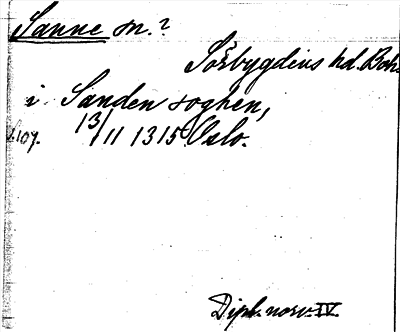 Sanne sn.?
Sörbygdens hd. Boh.
i Sanden soghen,
s.107. 13/11 1315 Oslo.
Dipl. norv. IV.